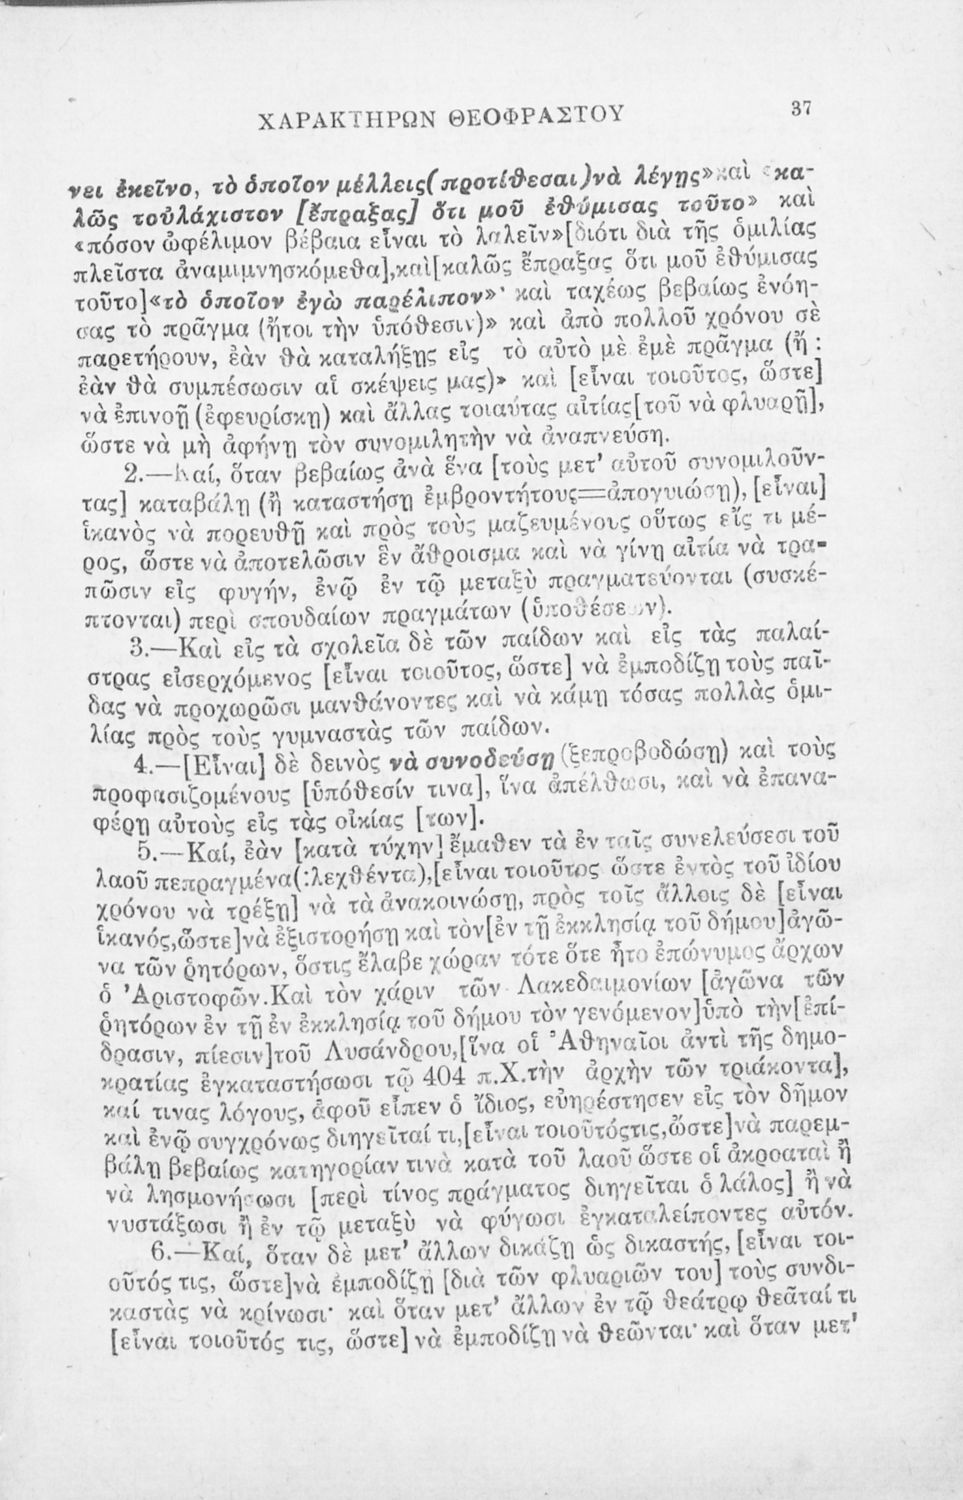 ΧΑΡΑΚΤΗΡΩΝ ΘΕΟΦΡΑΣΤΟΥ 37
νει ἐκεῖνο, τὸ ὁποῖον μέλλεις(προτίθεσαι)νὰ λέγῃς» καὶ «κα-
λῶς τοὐλάχιστον [ἔπραξας] ὅτι μοῦ ἐθύμισας τοῦτο» καὶ
«πόσον ὠφέλιμον βέβαια εἶναι τὸ λαλεῖν»[διότι διὰ τῆς ὁμιλίας
πλεῖστα ἀναμιμνησκόμεθα],καὶ[καλῶς ἔπραξας ὅτι μοῦ ἐθύμισας
τοῦτο]«τὸ ὁποῖον ἐγὼ παρέλιπον»· καὶ ταχέως βεβαίως ἐνόη-
σας τὸ πρᾶγμα (ἤτοι τὴν ὑπόθεσιν)» καὶ ἀπὸ πολλοῦ χρόνου σὲ
παρετήρουν, ἐὰν θὰ καταλήξῃς εἰς τὸ αὐτὸ μὲ ἐμὲ πρᾶγμα (ἤ :
ἐὰν θὰ συμπέσωσιν αἱ σκέψεις μας)» καὶ [εἶναι τοιοῦτος, ὥστε]
νὰ ἐπινοῇ (ἐφευρίσκῃ) καὶ ἄλλας τοιαύτας αἰτίας[τοῦ νὰ φλυαρῇ],
ὥστε νὰ μὴ ἀφήνῃ τὸν συνομιλητὴν νὰ ἀναπνεύσῃ.
2.—Καί, ὅταν βεβαίως ἀνὰ ἕνα [τοὺς μετ' αὐτοῦ συνομιλοῦν-
τας] καταβάλῃ (ἢ καταστήσῃ ἐμβροντήτους=ἀπογυιώσῃ), [εἶναι]
ἱκανὸς νὰ πορευθῇ καὶ πρὸς τοὺς μαζευμένους οὕτως εἴς τι μέ-
ρος, ὥστε νὰ ἀποτελῶσιν ἓν ἄθροισμα καὶ νὰ γίνῃ αἰτία νὰ τρα-
πῶσιν εἰς φυγήν, ἐνῷ ἐν τῷ μεταξὺ πραγματεύονται (συσκέ-
πτονται) περὶ σπουδαίων πραγμάτων (ὑποθέσεων).
3.—Καὶ εἰς τὰ σχολεῖα δὲ τῶν παίδων καὶ εἰς τὰς παλαί-
στρας εἰσερχόμενος [εἶναι τοιοῦτος, ὥστε] νὰ ἐμποδίζῃ τοὺς παῖ-
δας νὰ προχωρῶσι μανθάνοντες καὶ νὰ κάμῃ τόσας πολλὰς ὁμι-
λίας πρὸς τοὺς γυμναστὰς τῶν παίδων.
4.—[Εἶναι] δὲ δεινὸς νὰ συνοδεύσῃ (ξεπροβοδώσῃ) καὶ τοὺς
προφασιζομένους [ὑπόθεσίν τινα], ἵνα ἀπέλθωσι, καὶ νὰ ἐπανα-
φέρῃ αὐτοὺς εἰς τὰς οἰκίας [των].
5.—Καί, ἐὰν [κατὰ τύχην] ἔμαθεν τὰ ἐν ταῖς συνελεύσεσι τοῦ
λαοῦ πεπραγμένα(:λεχθέντα),[εἶναι τοιοῦτος ὥστε ἐντὸς τοῦ ἰδίου
χρόνου νὰ τρέξῃ] νὰ τὰ ἀνακοινώσῃ, πρὸς τοῖς ἄλλοις δὲ [εἶναι
ἱκανός,ὥστε]νὰ ἐξιστορήσῃ καὶ τὸν[ἐν τῇ ἐκκλησίᾳ τοῦ δήμου]ἀγῶ-
να τῶν ῥητόρων, ὅστις ἔλαβε χώραν τότε ὅτε ἦτο ἐπώνυμος ἄρχων
ὁ Ἀριστοφῶν.Καὶ τὸν χάριν τῶν Λακεδαιμονίων [ἀγῶνα τῶν
ῥητόρων ἐν τῇ ἐν ἐκκλησίᾳ τοῦ δήμου τὸν γενόμενον]ὑπὸ τὴν[ἐπί-
δρασιν, πίεσιν]τοῦ Λυσάνδρου,[ἵνα οἱ Ἀθηναῖοι ἀντὶ τῆς δημο-
κρατίας ἐγκαταστήσωσι τῷ 404 π.Χ.τὴν ἀρχὴν τῶν τριάκοντα],
καί τινας λόγους, ἀφοῦ εἶπεν ὁ ἴδιος, εὐηρέστησεν εἰς τὸν δῆμον
καὶ ἐνῷ συγχρόνως διηγεῖταί τι,[εἶναι τοιοῦτόςτις,ὥστε]νὰ παρεμ-
βάλῃ βεβαίως κατηγορίαν τινὰ κατὰ τοῦ λαοῦ ὥστε οἱ ἀκροαταὶ ἢ
νὰ λησμονήσωσι [περὶ τίνος πράγματος διηγεῖται ὁ λάλος] ἢ νὰ
νυστάξωσι ἢ ἐν τῷ μεταξὺ νὰ φύγωσι ἐγκαταλείποντες αὐτόν.
6.—Καί, ὅταν δὲ μετ' ἄλλων δικάζῃ ὡς δικαστής, [εἶναι τοι-
οῦτός τις, ὥστε]νὰ ἐμποδίζῃ [διὰ τῶν φλυαριῶν του] τοὺς συνδι-
καστὰς νὰ κρίνωσι· καὶ ὅταν μετ' ἄλλων ἐν τῷ θεάτρῳ θεᾶταί τι
[εἶναι τοιοῦτός τις, ὥστε] νὰ ἐμποδίζῃ νὰ θεῶνται· καὶ ὅταν μετ'